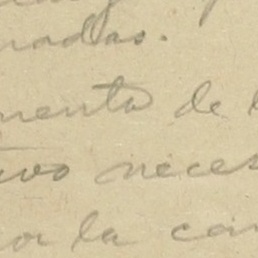 nadas.
mento de l
ivo neces
or la con